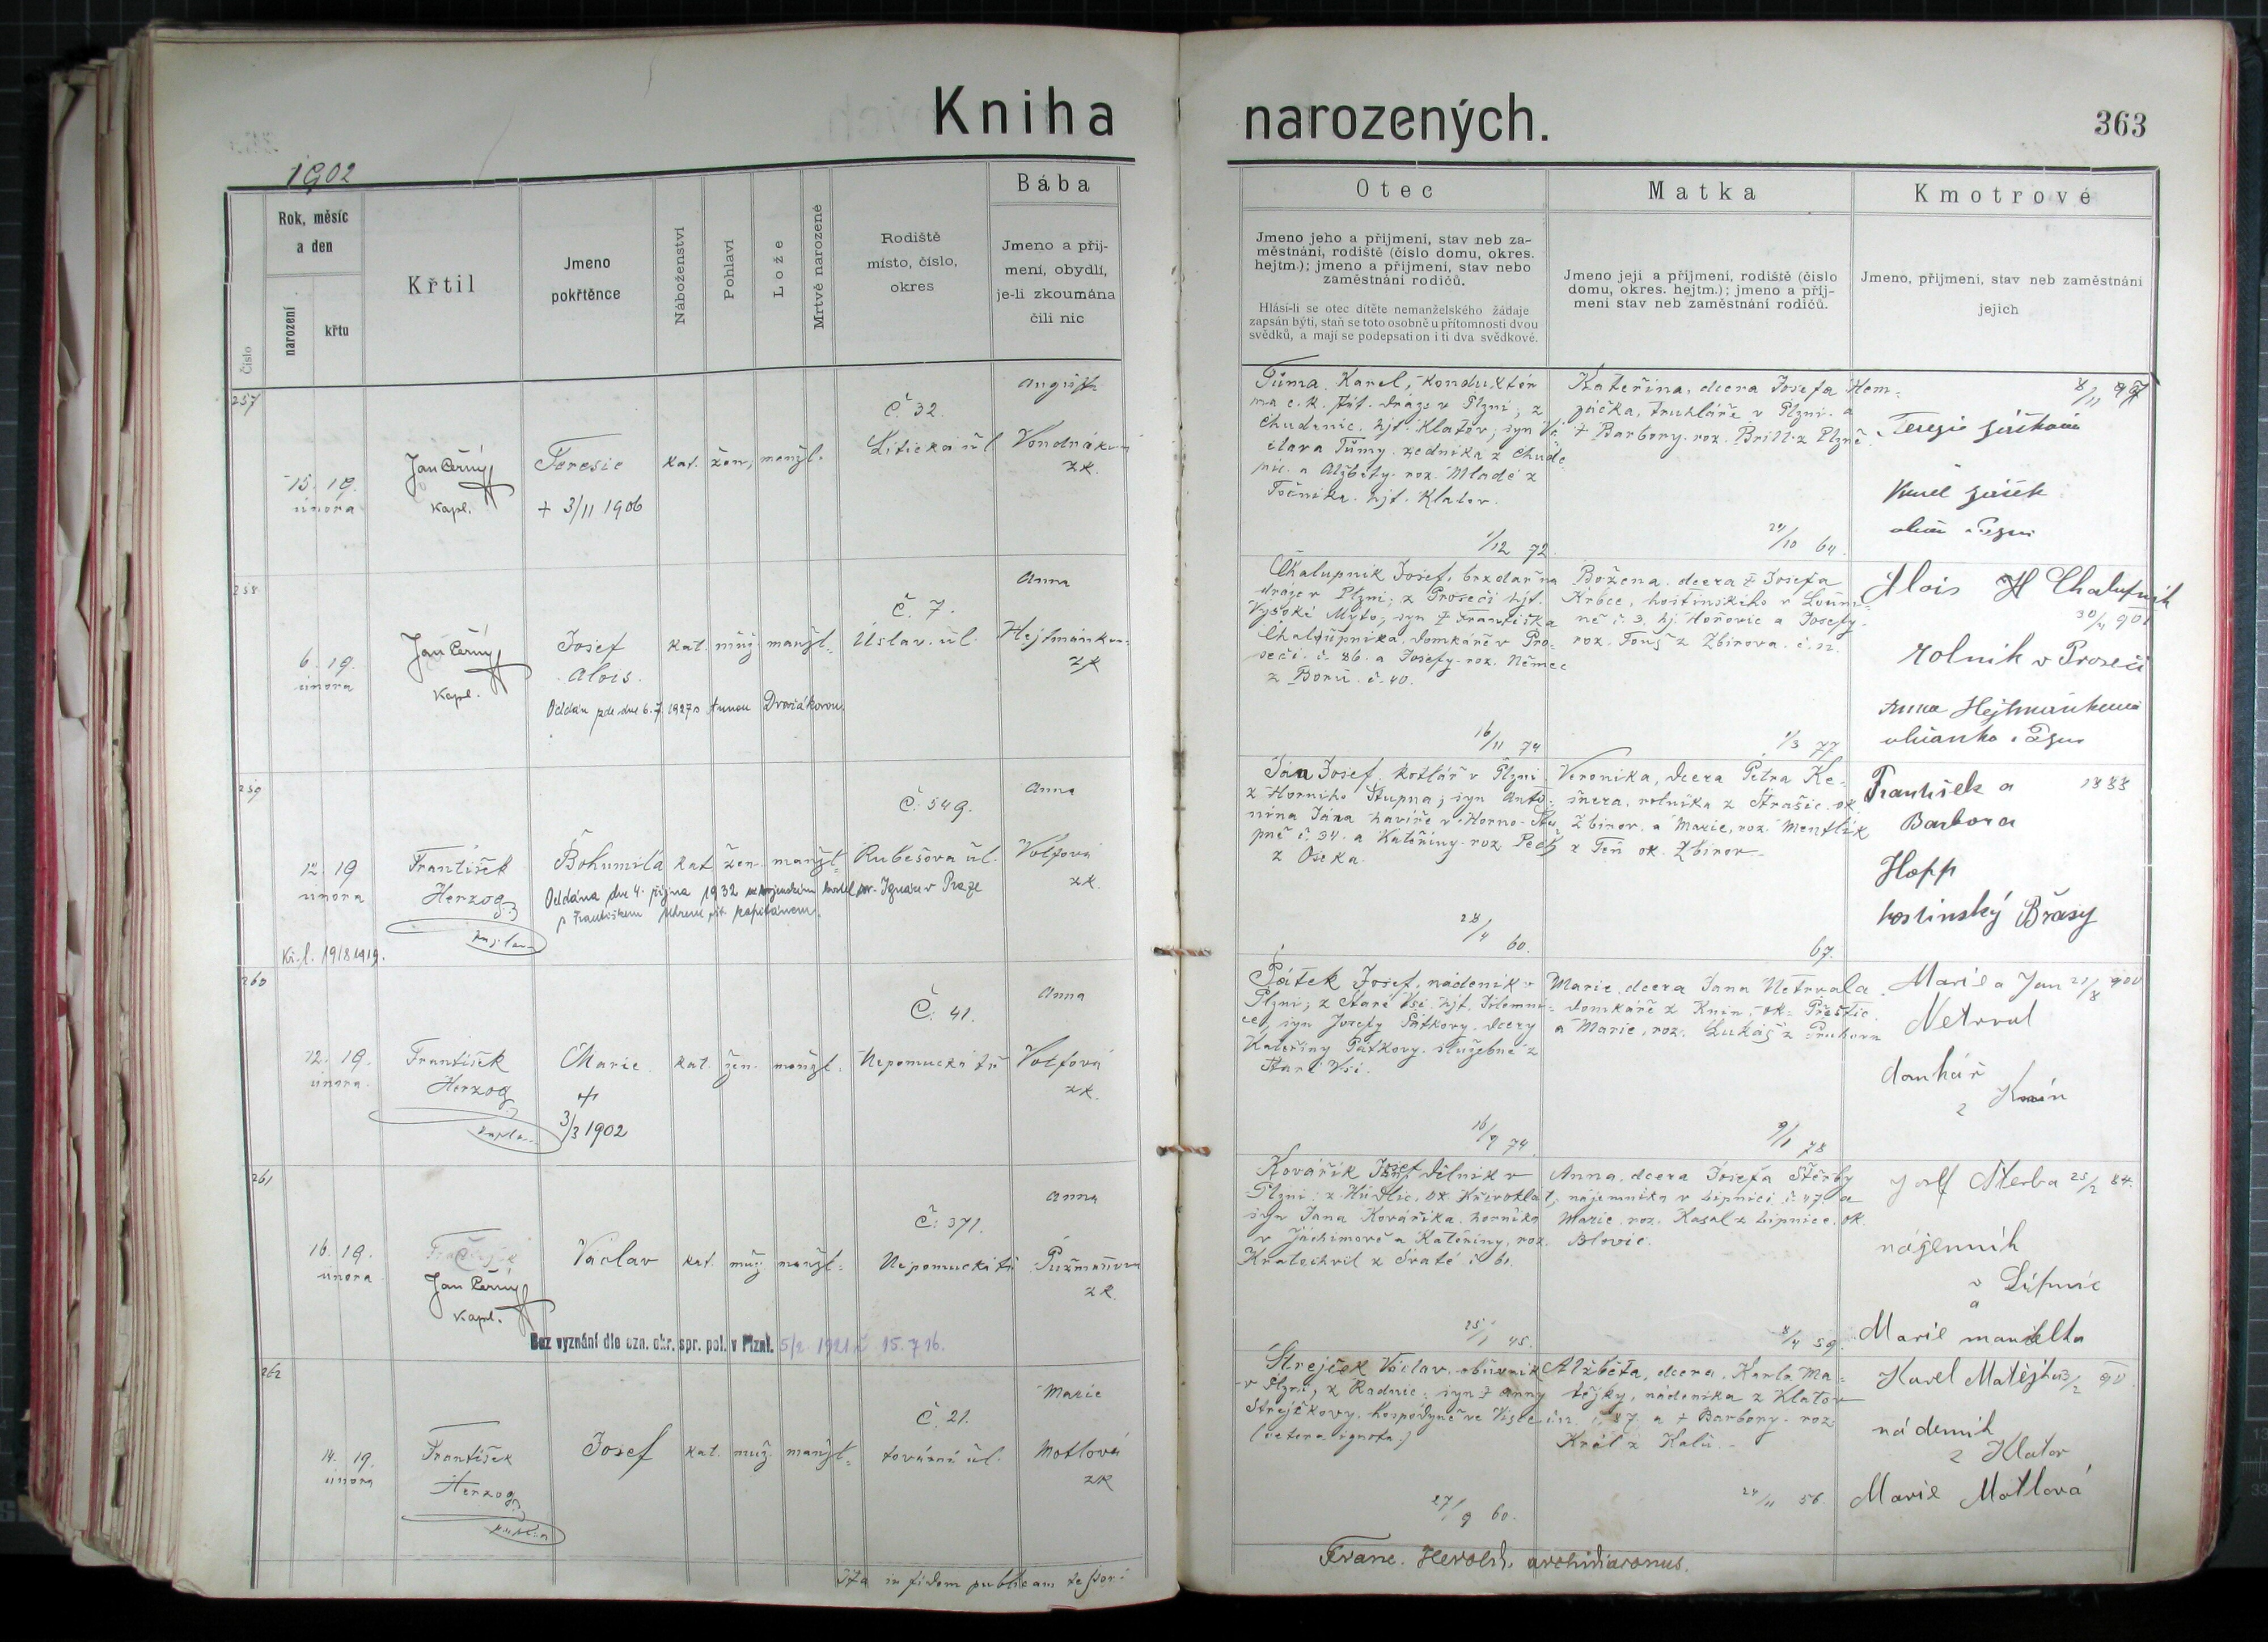 Kniha narozených.
363
1902
Číslo
Rok, měsíc
a den
narození
křtu
Křtil
Jmeno
pokřtěnce
Náboženství
Pohlaví
Lože
Mrtvě narozené
Rodiště
místo, číslo,
okres
Bába
Jmeno a příj-
mení, obydlí,
je-li zkoumána
čili nic
Otec
Jmeno jeho a příjmení, stav neb za-
městnání, rodiště (číslo domu, okres.
hejtm.); jmeno a příjmení, stav nebo
zaměstnání rodičů.
Hlásí-li se otec dítěte nemanželského žádaje
zapsán býti, staň se toto osobně u přítomnosti dvou
svědků, a mají se podepsati on i ti dva svědkové.
Matka
Jmeno její a příjmení, rodiště (číslo
domu, okres. hejtm.); jmeno a příj-
mení stav neb zaměstnání rodičů.
Kmotrové
Jmeno, příjmení, stav neb zaměstnání
jejich
257
15. 19.
února
Jan Černý
Kapl.
Teresie
+ 3/11 1906
kat. žen. manžl.
Č. 32.
Litická úl.
August.
zk.
Tůma Karel, konduktér
na c. k. stát. dráze v Plzni; z
Chudenic, hjt. Klatov; syn Vá-
clava Tůmy, zedníka z Chude-
nic a Alžběty roz. Mladé z
Točníka hjt. Klatov.
1/12 72.
Kateřina, dcera Josefa Hem-
žáčka, truhláře v Plzni a
+ Barbory roz. Brill z Plzně.
10 64.
8/11 97
258
6. 19.
února
Jan Černý
Kapl.
Josef
Alois.
Oddán zde dne 6.7. 1927 s Annou Dvořákovou.
kat. muž. manžl.
Č. 7.
Úslav. úl.
Anna
zk
Chalupník Josef, brzdař na
dráze v Plzni; z Proseči hjt.
Vysoké Mýto, syn + Františka
Chalupníka domkáře v Pro-
seči č. 86. a Josefy roz. Němec
z Borů č. 40.
16/11 74
Božena, dcera + Josefa
Krbce, hostinského v
ně č. 3. hj. Hořovic a Josefy
roz. Fouš z Zbirova č. 12.
1/3 77
Alois Chalupník
rolník v Proseči
Anna Hejtmánková
259
12. 19
února
Kř. l. 1918 1919.
František
Herzog
kaplan
Bohumila
kat. žen. manžl.
Oddána dne 4. října 1932
s Františkem kapitánem.
Č. 549.
Rubešova úl.
Anna
Volfová
zk.
Jána Josef, kotlář v Plzni
z Horního Stupna; syn Anto-
nína Jána havíře v Horno-Stu-
pně č. 34. a Kateřiny roz Pech
z Oseka.
28/4 60.
Veronika, dcera Petra Ke-
šnera, rolníka z Strašic ok.
Zbirov. a Marie, roz. Mentlik
z Těň ok. Zbirov.
67.
František a 1888
Barbora
Hopp
hostinský Břasy
260
12. 19.
února
František
Herzog
kaplan
Marie
+
3/3 1902
kat. žen. manžl.
Č. 41.
Nepomucká tř
Anna
Volfová
zk.
Pátek Josef, nádeník v
Plzni; z Staré Vsi hjt. Jilemni-
ce, syn Josefy Pátkovy, dcery
Kateřiny Pátkovy, služebné z
Staré Vsi.
74.
Marie, dcera Jana Netrvala
domkáře z Knín, ok. Přeštic.
a Marie, roz. Lukáš z
9/1 78
Marie a Jan 21/8 900
Netrval
domkář
z Knín
261
16. 19.
února
Jan Černý
Kapl.
Václav
kat. muž. manžl.
Bez vyznání dle ozn. okr. spr. pol. v Plzni. 5/2 1921 č. 15.716.
Č. 371.
Nepomucká tř
Anna
zk.
Kovářík Josef dělník v
Plzni z Hudlic, ok. Křivoklát,
syn Jana Kováříka, horníka
v Jáchimově a Kateřiny, roz.
Kratochvil z Svaté č. 61.
25/1 45.
Anna, dcera Josefa Štěrby
nájemníka v Lipnici č. 47. a
Marie roz. Kasal z Lipnice, ok.
Blovic.
8/4 59.
Josef Šterba 25/2 84.
nájemník
v Lipnic
a
Marie manželka
262
14. 19.
února
František
Herzog
kaplan
Josef
kat. muž. manžl.
Č. 21.
tovární úl.
Marie
Motlová
zk
Strejček Václav, obuvník
v Plzni, z Radnic, syn + Anny
Strejčkovy, hospodyně ve
27/9 60.
Alžběta, dcera Karla Ma-
tějky, nádeníka z Klatov
č. 87. a + Barbory roz.
Král z Kalů.
24/11 56.
Karel Matějka
nádeník
z Klatov
Marie Motlová
Ita in fidem publicam testor:
Franc. Herold, archidiaconus.